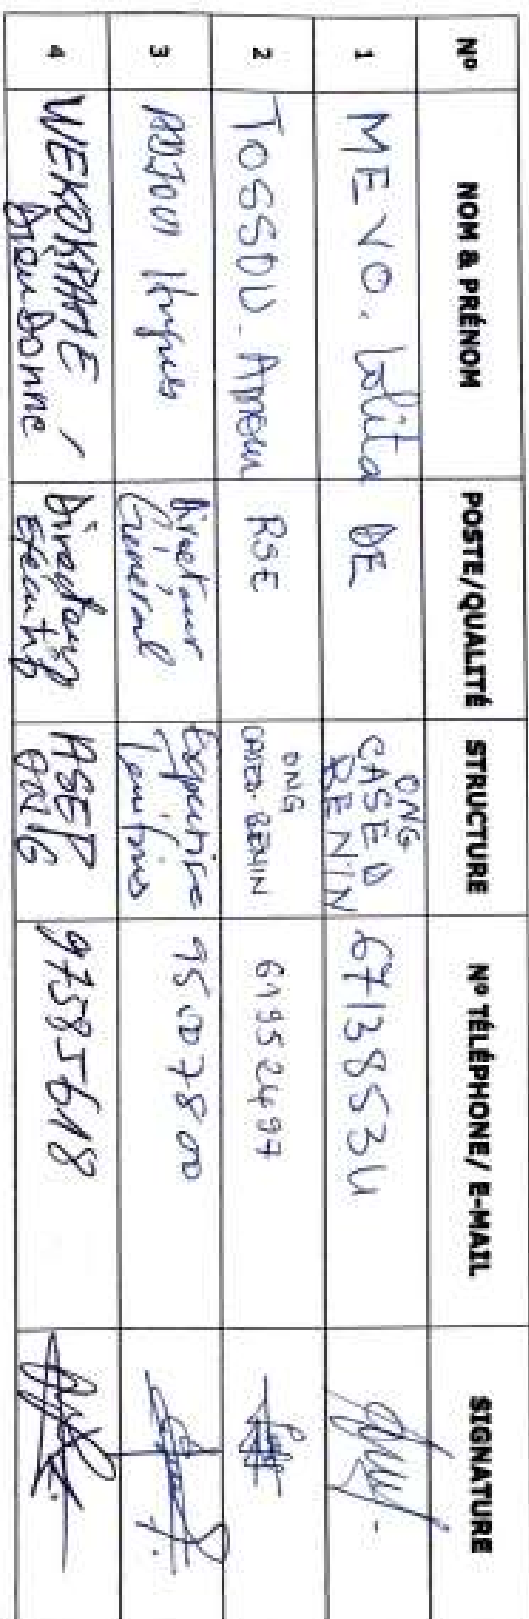 Nº NOM & PRÉNOM POSTE/QUALITÉ STRUCTURE Nº TÉLÉPHONE/ E-MAIL SIGNATURE
1 MEVO. Lolita DE ONG CASED BENIN 67138534
2 TOSSOU RSE ONG CASED-BENIN 61952497
3 Hugues Directeur Général Expertise 95007800
4 WEKOKPAME Dieudonné Directeur Exécutif ASEP ONG 97585618